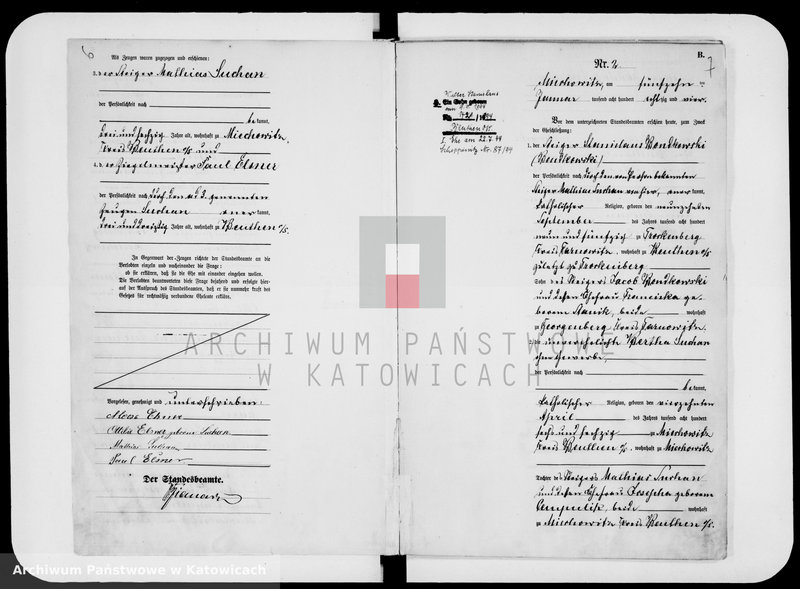 6
Als Zeugen waren zugezogen und erschienen:
3. der Steiger Mathias Suchan
der Persönlichkeit nach
be kannt,
drei und sechzig Jahre alt, wohnhaft zu Miechowitz,
Kreis Beuthen O/S. und
4. der Ziegelmeister Paul Elsner
der Persönlichkeit nach durch den ad 3 genannten
Zeugen Suchan aner kannt,
drei und dreißig Jahre alt, wohnhaft zu Beuthen O/S.
In Gegenwart der Zeugen richtete der Standesbeamte an die
Verlobten einzeln und nacheinander die Frage:
ob sie erklären, daß sie die Ehe mit einander eingehen wollen.
Die Verlobten beantworteten diese Frage bejahend und erfolgte hier-
auf der Ausspruch des Standesbeamten, daß er sie nunmehr kraft des
Gesetzes für rechtmäßig verbundene Eheleute erkläre.
Vorgelesen, genehmigt und unterschrieben:
Elsner
Ottilie Elsner geborne Suchan
Mathias Suchan
Paul Elsner
Der Standesbeamte.
B.
7
Nr. 2
Miechowitz, am fünfzehn ten
Januar tausend acht hundert achtzig und vier.
Vor dem unterzeichneten Standesbeamten erschienen heute, zum Zweck
der Eheschließung:
1. der Steiger Stanislaus Wondkowski
(Wendkowski)
der Persönlichkeit nach durch den von Person bekannten
Steiger Mathias Suchan von hier, aner kannt,
katholischer Religion, geboren den neunzehnten
September des Jahres tausend acht hundert
neun und fünfzig zu Trockenberg
Kreis Tarnowitz, wohnhaft zu Beuthen O/S
zuletzt zu Trockenberg
Sohn des Steigers Jacob Wondkowski
und dessen Ehefrau Franciska ge-
borene Stanik, beide wohnhaft
zu Georgenberg Kreis Tarnowitz.
2. die unverehelichte Bertha Suchan
ohne Gewerbe,
der Persönlichkeit nach
be kannt,
katholischer Religion, geboren den vierzehnten
April des Jahres tausend acht hundert
sechs und sechzig zu Miechowitz
Kreis Beuthen O/S. wohnhaft zu Miechowitz
Tochter des Steigers Mathias Suchan
und dessen Ehefrau Josepha geborene
beide wohnhaft
zu Miechowitz Kreis Beuthen O/S.
ARCHIWUM PAŃSTWOWE
W KATOWICACH
Archiwum Państwowe w Katowicach